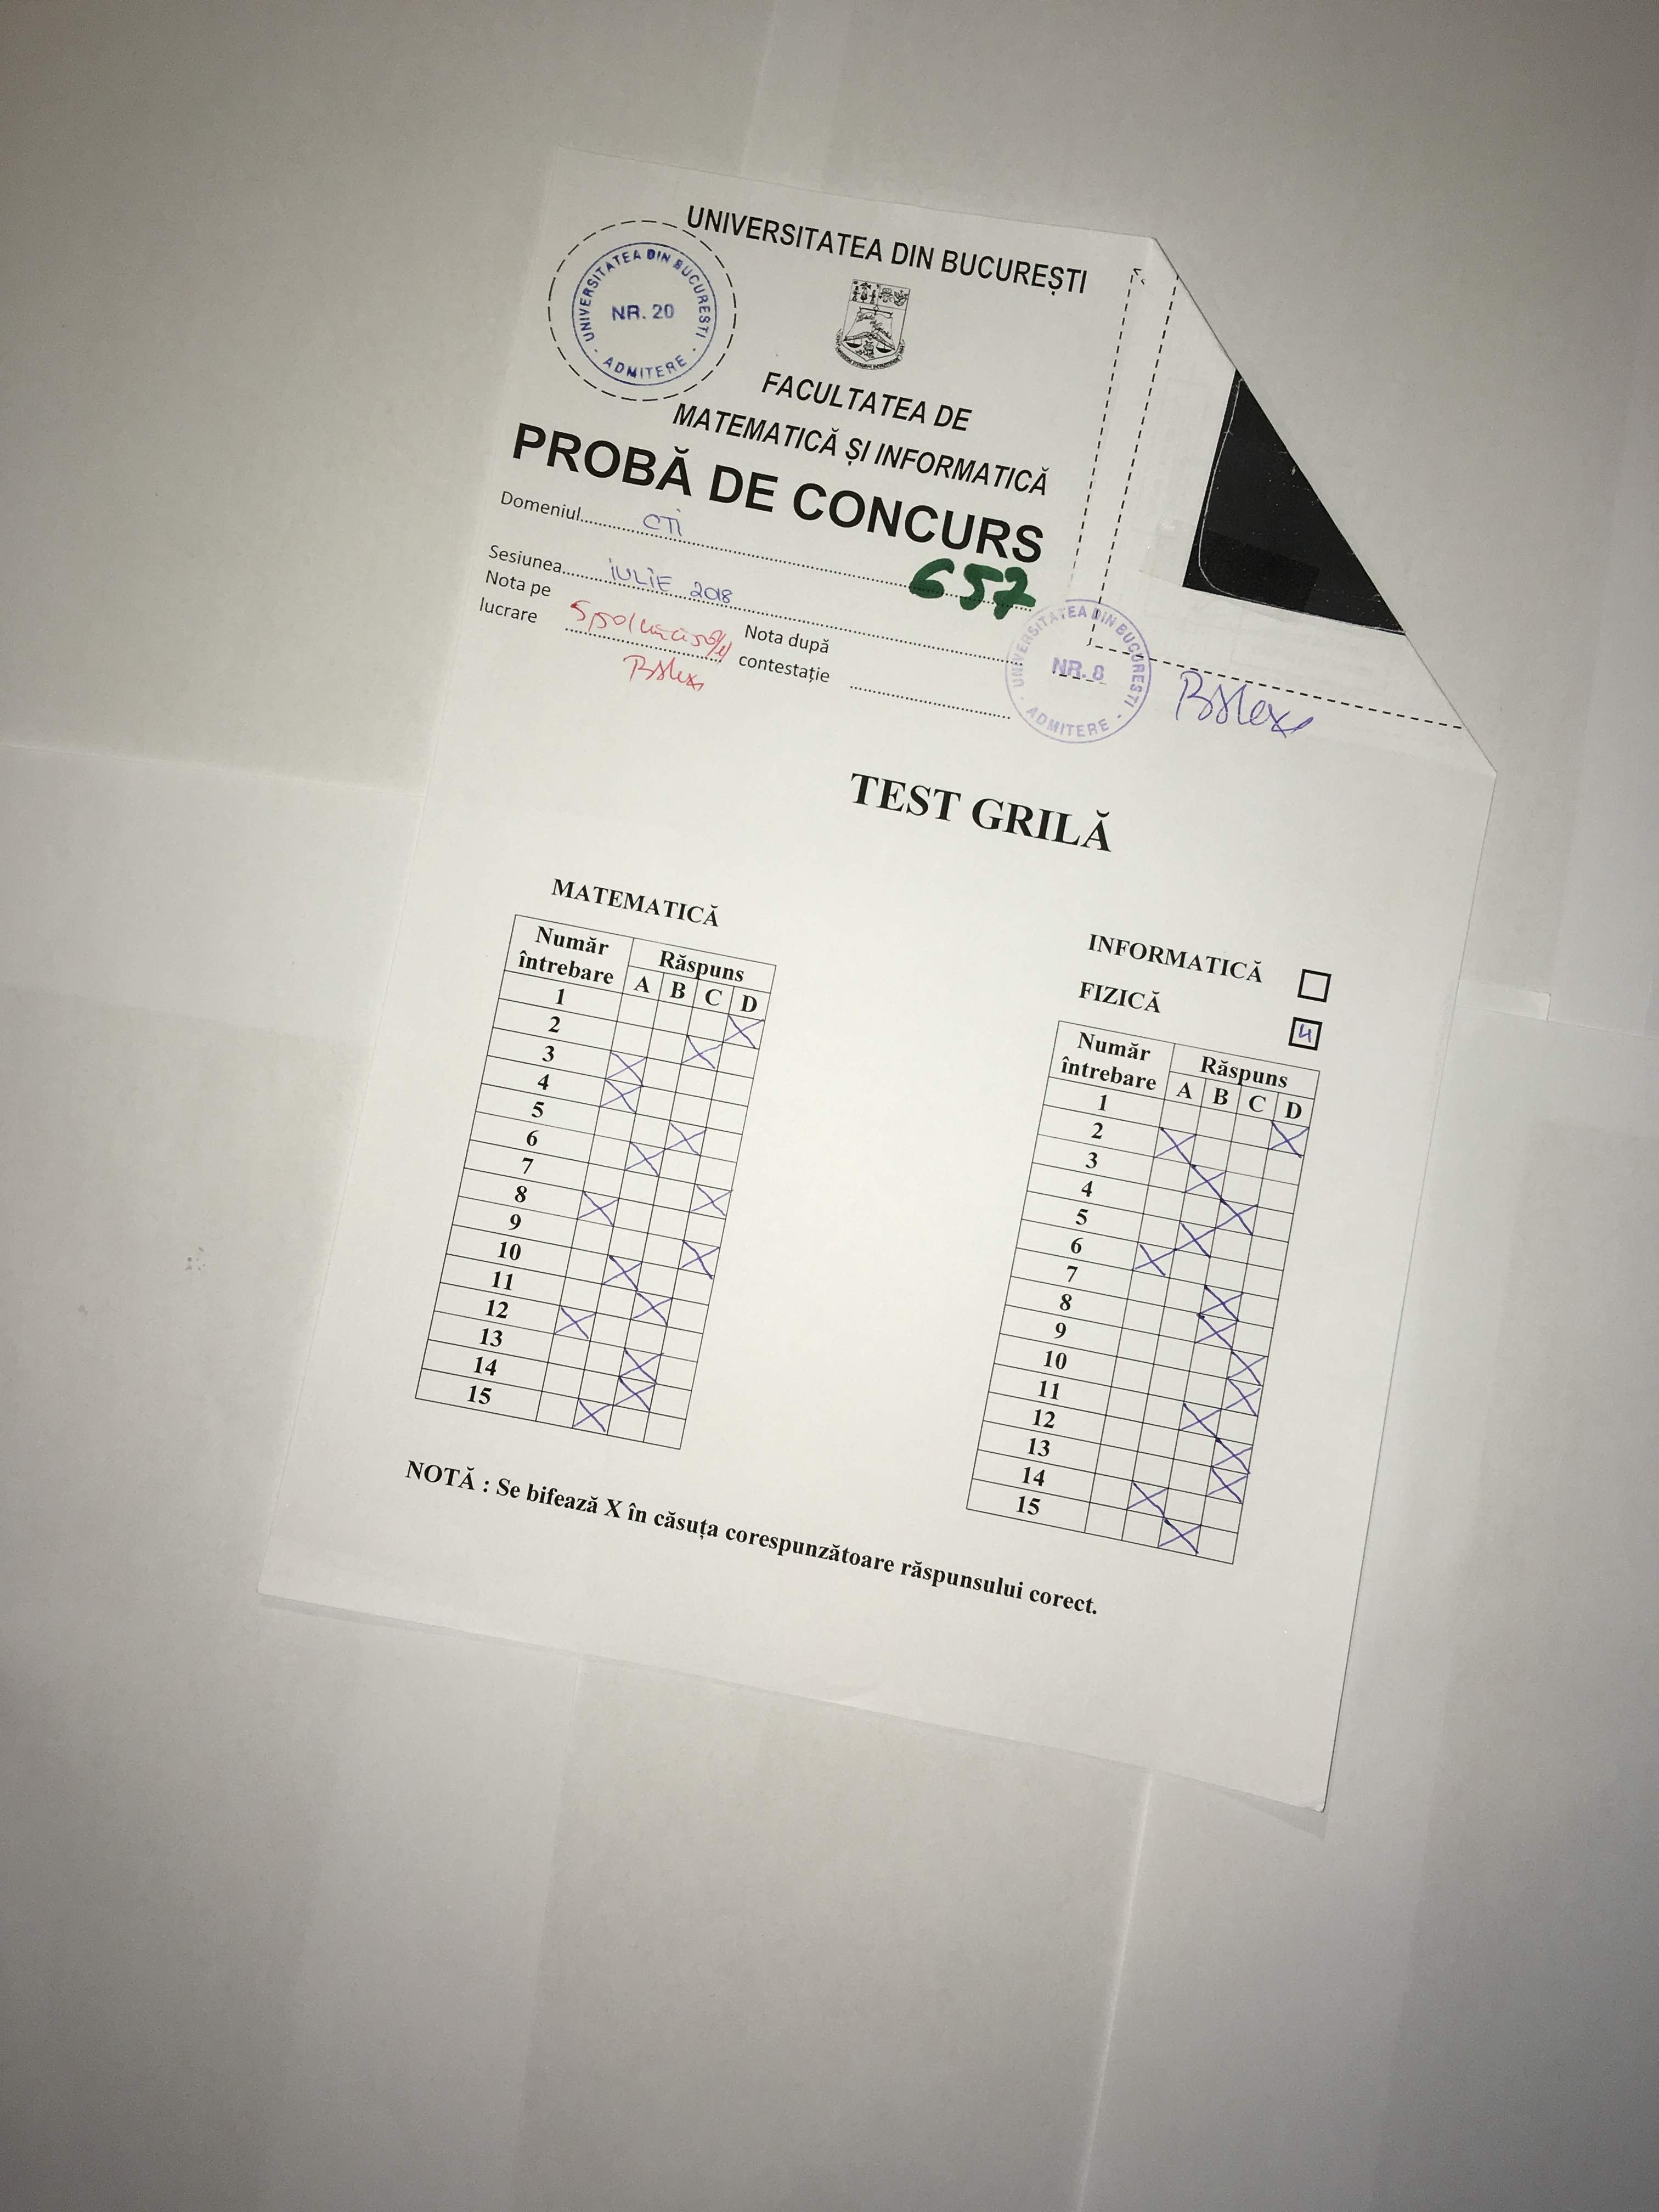 UNIVERSITATEA DIN BUCUREȘTI
UNIVERSITATEA DIN BUCURESTI
NR. 20
ADMITERE
FACULTATEA DE
MATEMATICĂ ȘI INFORMATICĂ
PROBĂ DE CONCURS
Domeniul CTI
657
Sesiunea IULIE 2018
Nota pe lucrare
Nota după contestație
UNIVERSITATEA DIN BUCURESTI
NR. 8
ADMITERE
TEST GRILĂ
MATEMATICĂ
Număr întrebare Răspuns
A B C D
1 
2
3
4
5
6
7
8
9
10
11
12
13
14
15
INFORMATICĂ
FIZICĂ 4
Număr întrebare Răspuns
A B C D
1
2
3
4
5
6
7
8
9
10
11
12
13
14
15
NOTĂ : Se bifează X în căsuța corespunzătoare răspunsului corect.